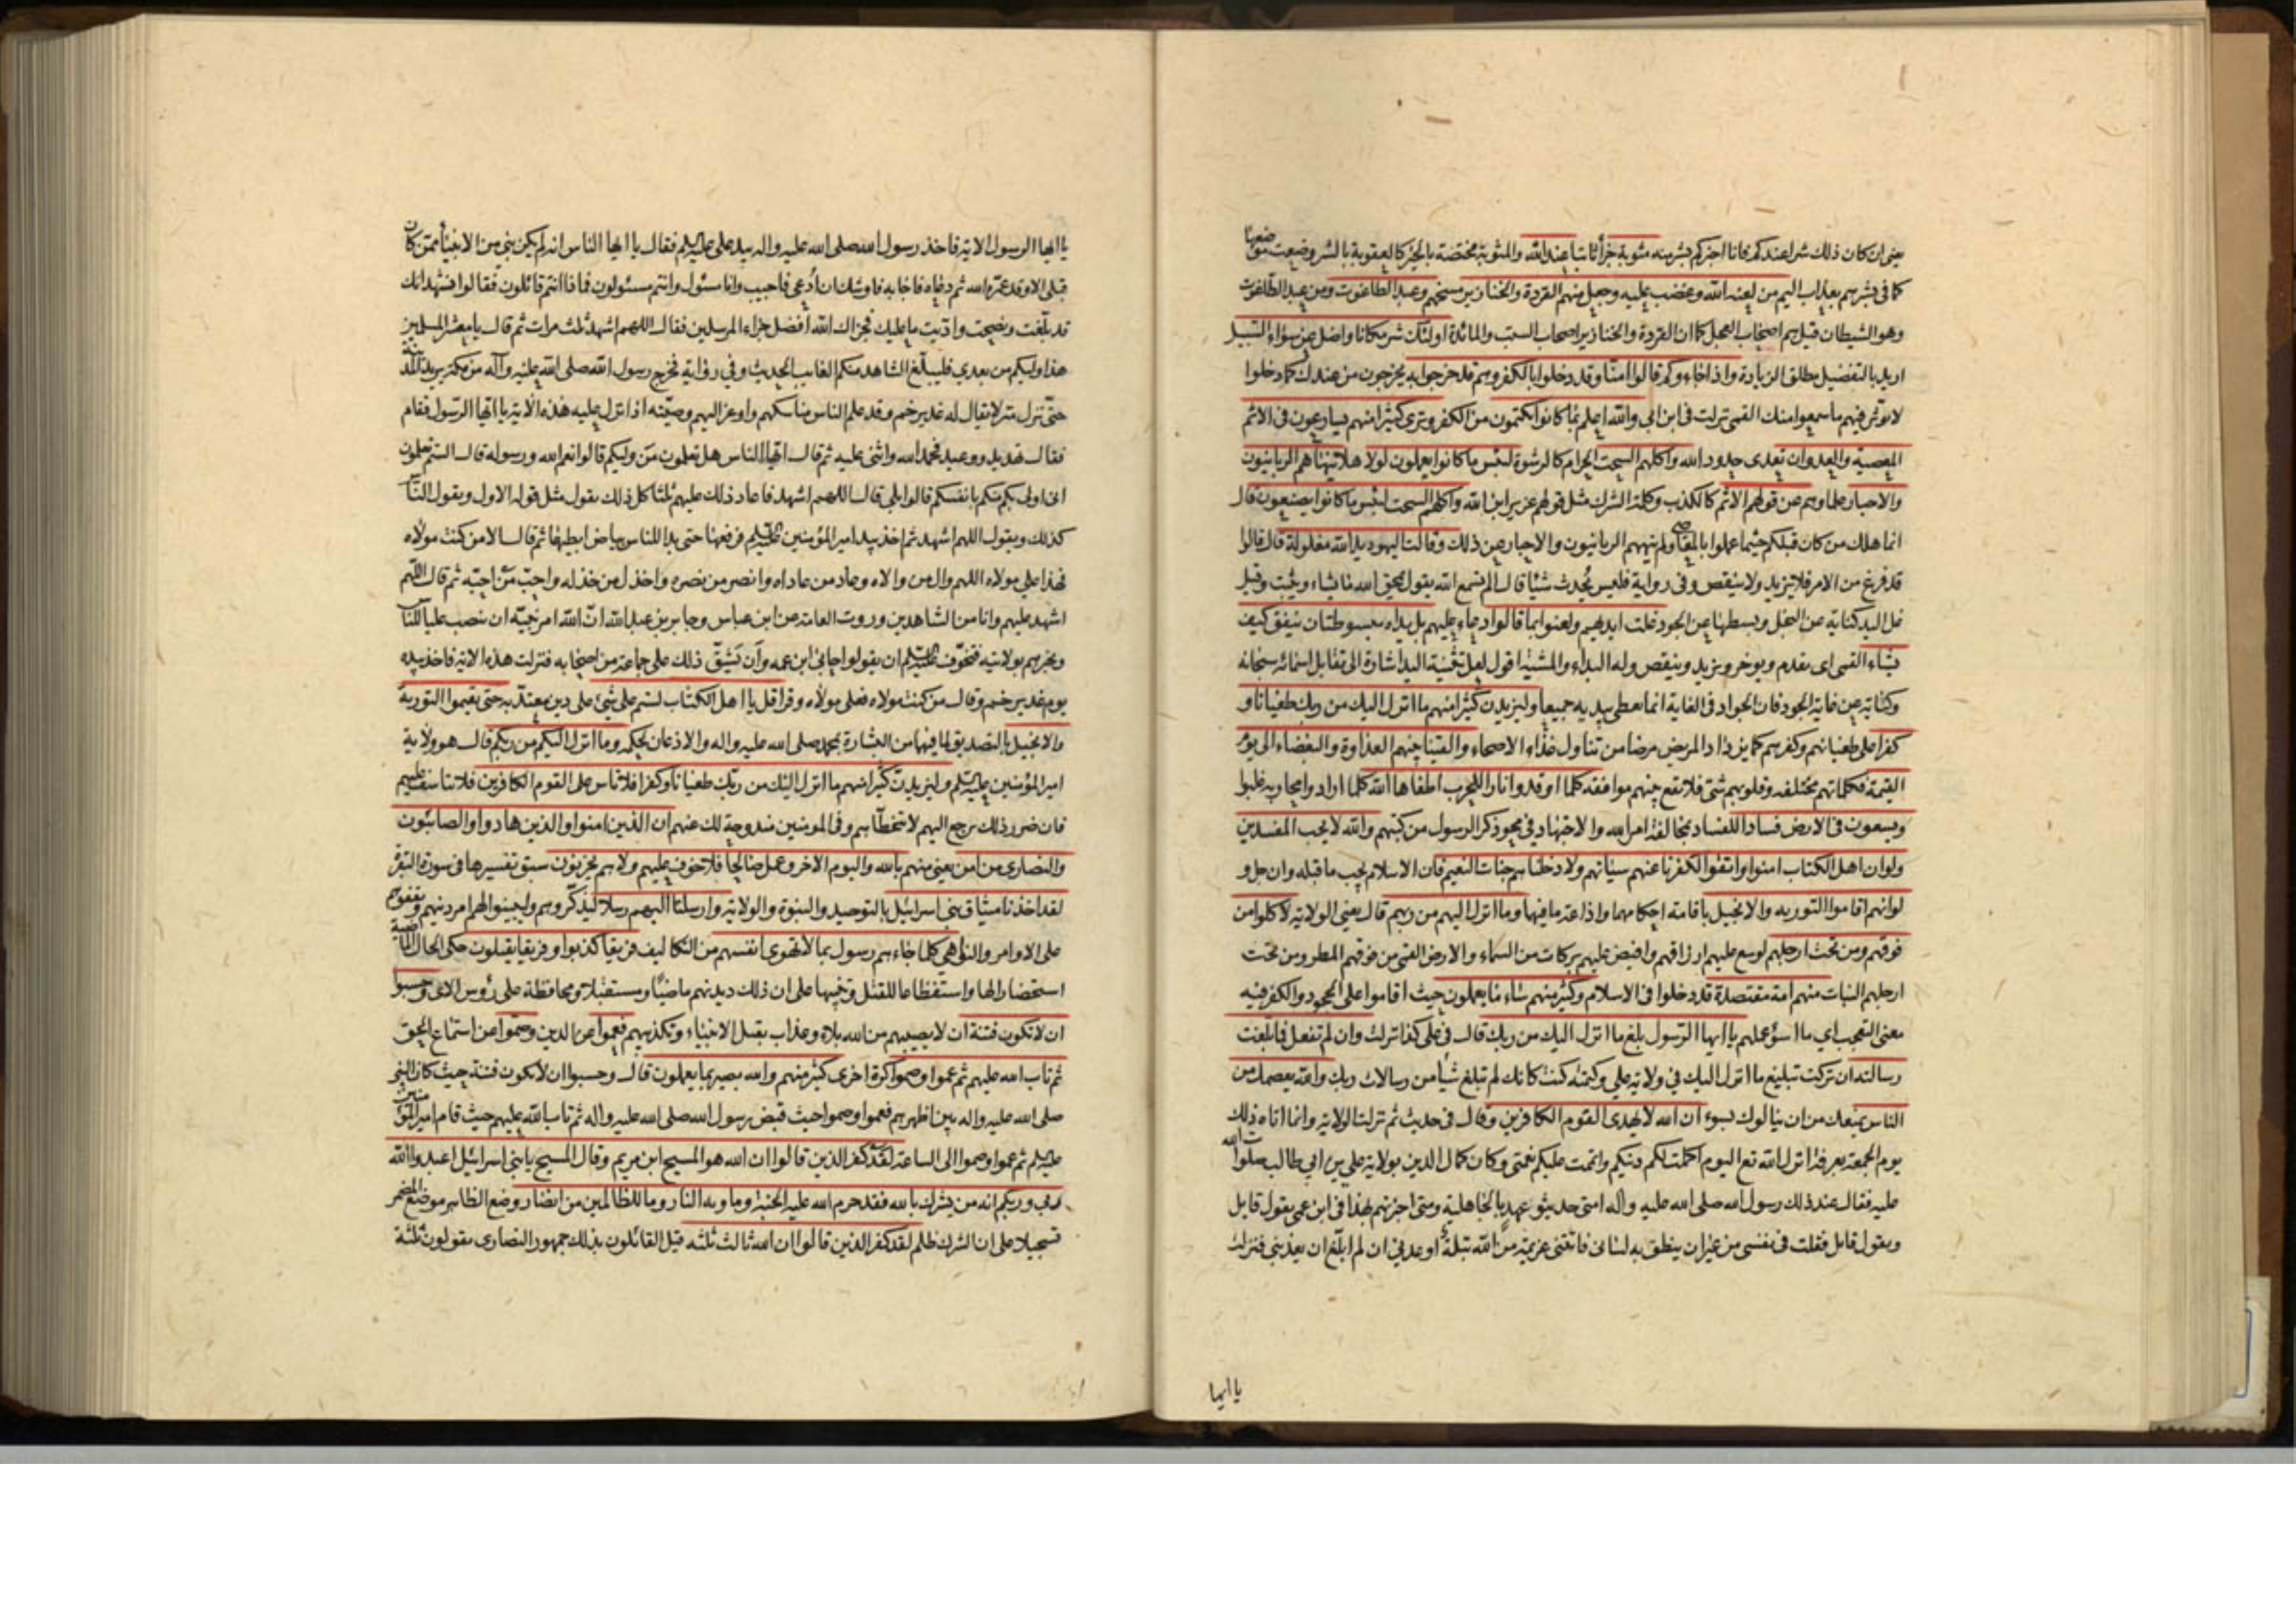 يعنى ان كان ذلك شرا عندكم فانا اخبركم بشر منه مثوبة جزاء ثابتا عند الله والمثوبة مختصة بالخير كالعقوبة بالشر وضعت موضعها
كما فى فبشرهم بعذاب اليم من لعنه الله وغضب عليه وجعل منهم القردة والخنازير مسخهم وعبد الطاغوت ومن عبد الطاغوت
وهو الشيطان قيل هم اصحاب العجل كما ان القردة والخنازير اصحاب السبت والمائدة اولئك شر مكانا واضل عن سواء السبيل
اريد بالتفضيل مطلق الزيادة واذا جاءوكم قالوا امنا وقد دخلوا بالكفر وهم قد خرجوا به يخرجون من عندك كما دخلوا
لا يؤثر فيهم ما سمعوا منك القمى نزلت فى ابن ابى والله اعلم بما كانوا يكتمون من الكفر وترى كثيرا منهم يسارعون فى الاثم
المعصية والعدوان تعدى حدود الله واكلهم السحت الحرام كالرشوة لبئس ما كانوا يعملون لولا هلا ينهاهم الربانيون
والاحبار علماؤهم عن قولهم الاثم كالكذب وكلمة الشرك مثل قولهم عزير ابن الله واكلهم السحت لبئس ما كانوا يصنعون قال
انما هلك من كان قبلكم حيثما عملوا بالمعاصى ولم ينههم الربانيون والاحبار عن ذلك وقالت اليهود يد الله مغلولة قال قالوا
قد فرغ من الامر فلا يزيد ولا ينقص وفى رواية فليس يحدث شيئا قال الم تسمع الله يقول يمحو الله ما يشاء ويثبت وقيل
غل اليد كناية عن البخل وبسطها عن الجود غلت ايديهم ولعنوا بما قالوا دعاء عليهم بل يداه مبسوطتان ينفق كيف
يشاء القمى اى يقدم ويؤخر ويزيد وينقص وله البداء والمشية اقول لعل تثنية اليد اشارة الى تقابل اسمائه سبحانه
وكناية عن غاية الجود فان الجواد فى الغاية انما يعطى بيديه جميعا وليزيدن كثيرا منهم ما انزل اليك من ربك طغيانا و
كفرا على طغيانهم وكفرهم كما يزداد المريض مرضا من تناول غذاء الاصحاء والقينا بينهم العداوة والبغضاء الى يوم
القيمة فكلماتهم مختلفه وقلوبهم شتى فلا يقع بينهم موافقه كلما اوقدوا نارا للحرب اطفاها الله كلما ارادوا محاربه غلبوا
ويسعون فى الارض فسادا للفساد بمخالفة امر الله والاجتهاد فى محو ذكر الرسول من كتبهم والله لا يحب المفسدين
ولو ان اهل الكتاب امنوا واتقوا لكفرنا عنهم سيئاتهم ولادخلناهم جنات النعيم فان الاسلام يجب ما قبله وان جل و
لو انهم اقاموا التوريه والانجيل باقامة احكامهما واذاعة ما فيها وما انزل اليهم من ربهم قال يعنى الولاية لاكلوا من
فوقهم ومن تحت ارجلهم لوسع عليهم ارزاقهم وافيض عليهم بركات من السماء والارض القمى من فوقهم المطر ومن تحت
ارجلهم النبات منهم امة مقتصدة قد دخلوا فى الاسلام وكثير منهم ساء ما يعملون حيث اقاموا على الجحود والكفر فيه
معنى التعجب اى ما اسوء عملهم يا ايها الرسول بلغ ما انزل اليك من ربك قال فى على كذا نزلت وان لم تفعل فما بلغت
رسالته ان تركت تبليغ ما انزل اليك فى ولاية على وكتمته كنت كانك لم تبلغ شيئا من رسالات ربك والله يعصمك من
الناس يمنعك من ان ينالوك بسوء ان الله لا يهدى القوم الكافرين وقال فى حديث ثم نزلت الولاية وانما اتاه ذلك
يوم الجمعة بعرفة انزل الله تع اليوم اكملت لكم دينكم واتممت عليكم نعمتى وكان كمال الدين بولاية على بن ابى طالب صلوات الله
عليه فقال عند ذلك رسول الله صلى الله عليه واله امتى حديثو عهد بالجاهلية ومتى اخبرتهم بهذا فى ابن عمى يقول قايل
ويقول قايل فقلت فى نفسى من غير ان ينطق به لسانى فاتتنى عزيمة من الله بتلة اوعدنى ان لم ابلغ ان يعذبنى فنزلت
يا ايها
يا ايها الرسول الاية فاخذ رسول الله صلى الله عليه واله بيد على عليه السلم فقال يا ايها الناس انه لم يكن نبى من الانبياء ممن كان
قبلى الا وقد عمره الله ثم دعاه فاجابه فاوشك ان ادعى فاجيب وانا مسئول وانتم مسئولون فماذا انتم قائلون فقالوا نشهد انك
قد بلغت ونصحت واديت ما عليك فجزاك الله افضل جزاء المرسلين فقال اللهم اشهد ثلث مرات ثم قال يا معشر المسلمين
هذا وليكم من بعدى فليبلغ الشاهد منكم الغايب الحديث وفى رواية فخرج رسول الله صلى الله عليه وآله من مكة يريد المدينة
حتى نزل منزلا يقال له غدير خم وقد علم الناس مناسكهم واوعز اليهم وصيته اذ انزل عليه هذه الاية يا ايها الرسول فقام
فقال تهديد ووعيد فحمد الله واثنى عليه ثم قال ايها الناس هل تعلمون من وليكم قالوا نعم الله ورسوله قال الستم تعلمون
انى اولى بكم منكم بانفسكم قالوا بلى قال اللهم اشهد فاعاد ذلك عليهم ثلثا كل ذلك يقول مثل قوله الاول ويقول الناس
كذلك ويقول اللهم اشهد ثم اخذ بيد امير المؤمنين عليه السلم فرفعها حتى بدا للناس بياض ابطيهما ثم قال الا من كنت مولاه
فهذا على مولاه اللهم وال من والاه وعاد من عاداه وانصر من نصره واخذل من خذله واحب من احبه ثم قال اللهم
اشهد عليهم وانا من الشاهدين وروت العامة عن ابن عباس وجابر بن عبد الله ان الله امر نبيه ان ينصب عليا للناس
ويخبرهم بولايته فتخوف عليه السلم ان يقولوا حابى ابن عمه وان يشق ذلك على جماعة من اصحابه فنزلت هذه الاية فاخذ بيده
يوم غدير خم وقال من كنت مولاه فعلى مولاه وقرا قل يا اهل الكتاب لستم على شئ على دين يعتد به حتى تقيموا التورية
والانجيل بالتصديق لما فيهما من البشارة بمحمد صلى الله عليه واله والاذعان لحكمه وما انزل اليكم من ربكم قال هو ولاية
امير المؤمنين عليه السلم وليزيدن كثيرا منهم ما انزل اليك من ربك طغيانا وكفرا فلا تاس على القوم الكافرين فلا تتاسف عليهم
فان ضرر ذلك يرجع اليهم لا يتخطاهم وفى المؤمنين مندوحة لك عنهم ان الذين امنوا والذين هادوا والصابئون
والنصارى من امن يعنى منهم بالله واليوم الاخر وعمل صالحا فلا خوف عليهم ولا هم يحزنون سبق تفسيرها فى سورة البقرة
لقد اخذنا ميثاق بنى اسرائيل بالتوحيد والنبوة والولاية وارسلنا اليهم رسلا ليذكروهم وليبينوا لهم امر دينهم ويقفوهم
على الاوامر والنواهى كلما جاءهم رسول بما لا تهوى انفسهم من التكاليف فريقا كذبوا وفريقا يقتلون حكى الحال الماضية
استحضارا لها واستفظاعا للقتل وتنبيها على ان ذلك ديدنهم ماضيا ومستقبلا ومحافظة على رؤس الاى وحسبوا
ان لا تكون فتنة ان لا يصيبهم من الله بلاء وعذاب بقتل الانبياء وتكذيبهم فعموا عن الدين وصموا عن استماع الحق
ثم تاب الله عليهم ثم عموا وصموا كرة اخرى كثير منهم والله بصير بما يعملون قال وحسبوا ان لا تكون فتنة حيث كان النبى
صلى الله عليه واله بين اظهرهم فعموا وصموا حيث قبض رسول الله صلى الله عليه واله ثم تاب الله عليهم حيث قام امير المؤمنين
عليه السلم ثم عموا وصموا الى الساعة لقد كفر الذين قالوا ان الله هو المسيح ابن مريم وقال المسيح يا بنى اسرائيل اعبدوا الله
ربى وربكم انه من يشرك بالله فقد حرم الله عليه الجنة وماويه النار وما للظالمين من انصار وضع الظاهر موضع المضمر
تسجيلا على ان الشرك ظلم لقد كفر الذين قالوا ان الله ثالث ثلثه قيل القائلون بذلك جمهور النصارى يقولون ثلثة